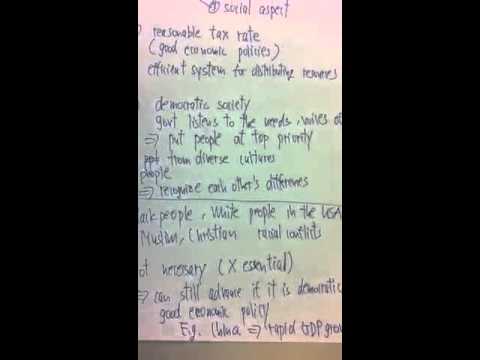 ④ social aspect
reasonable tax rate
(good economic policies)
efficient system for distributing resources
democratic society
govt listens to the needs, voices of
⇒ put people at top priority
ppt from diverse cultures
people
⇒ recognize each other's differences
people, White people in the USA
Muslim, Christian racial conflicts
not necessary (X essential)
⇒ can still advance if it is democratic
good economic policy
E.g. China ⇒ rapid GDP